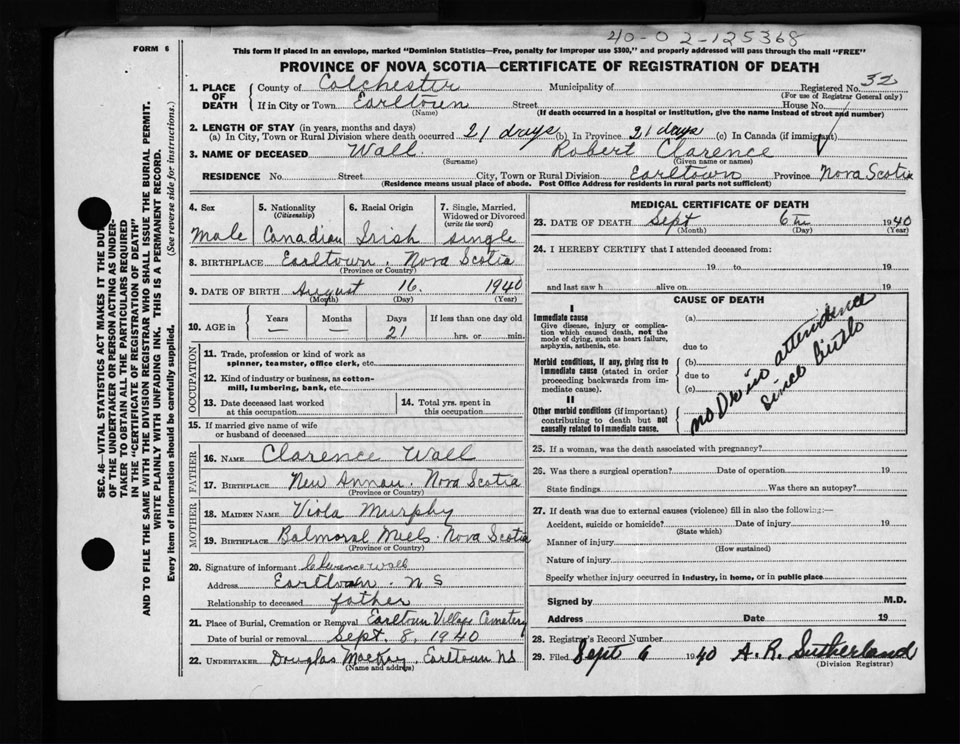 40-02-125368
FORM 6
This form if placed in an envelope, marked "Dominion Statistics—Free, penalty for improper use $300," and properly addressed will pass through the mail "FREE"
PROVINCE OF NOVA SCOTIA—CERTIFICATE OF REGISTRATION OF DEATH
SEC. 46—VITAL STATISTICS ACT MAKES IT THE DUTY
OF THE UNDERTAKER OR PERSON ACTING AS UNDER-
TAKER TO OBTAIN ALL THE PARTICULARS REQUIRED
IN THE "CERTIFICATE OF REGISTRATION OF DEATH"
AND TO FILE THE SAME WITH THE DIVISION REGISTRAR WHO SHALL ISSUE THE BURIAL PERMIT.
WRITE PLAINLY WITH UNFADING INK. THIS IS A PERMANENT RECORD.
Every item of information should be carefully supplied. (See reverse side for instructions.)
1. PLACE OF DEATH County of Colchester Municipality of Registered No. 32
(For use of Registrar General only)
If in City or Town Earltown Street House No.
(Name) (If death occurred in a hospital or institution, give the name instead of street and number)
2. LENGTH OF STAY (in years, months and days)
(a) In City, Town or Rural Division where death occurred 21 days (b) In Province 21 days (c) In Canada (if immigrant)
3. NAME OF DECEASED Wall Robert Clarence
(Surname) (Given name or names)
RESIDENCE No. Street City, Town or Rural Division Earltown Province Nova Scotia
(Residence means usual place of abode. Post Office Address for residents in rural parts not sufficient)
4. Sex 5. Nationality (Citizenship) 6. Racial Origin 7. Single, Married, Widowed or Divorced (write the word)
Male Canadian Irish single
8. BIRTHPLACE Earltown. Nova Scotia
(Province or Country)
9. DATE OF BIRTH August 16. 1940
(Month) (Day) (Year)
10. AGE in Years Months Days If less than one day old
— — 21 hrs. or min.
OCCUPATION
11. Trade, profession or kind of work as spinner, teamster, office clerk, etc.
12. Kind of industry or business, as cotton-mill, lumbering, bank, etc.
13. Date deceased last worked at this occupation 14. Total yrs. spent in this occupation
15. If married give name of wife or husband of deceased
FATHER
16. NAME Clarence Wall
17. BIRTHPLACE New Annan. Nova Scotia
(Province or Country)
MOTHER
18. MAIDEN NAME Viola Murphy
19. BIRTHPLACE Balmoral Mills. Nova Scotia
(Province or Country)
20. Signature of informant Clarence Wall
Address Earltown. N S
Relationship to deceased father
21. Place of Burial, Cremation or Removal Earltown Village Cemetery
Date of burial or removal Sept. 8, 1940
22. UNDERTAKER Douglas MacKay. Earltown N.S
(Name and address)
MEDICAL CERTIFICATE OF DEATH
23. DATE OF DEATH Sept 6th 1940
(Month) (Day) (Year)
24. I HEREBY CERTIFY that I attended deceased from:
19 to 19
and last saw h alive on 19
CAUSE OF DEATH
I
Immediate cause (a)
Give disease, injury or complication which caused death, not the mode of dying, such as heart failure, asphyxia, asthenia, etc.
due to
Morbid conditions, if any, giving rise to immediate cause (stated in order proceeding backwards from immediate cause).
(b)
due to
(c)
II
Other morbid conditions (if important) contributing to death but not causally related to immediate cause.
no attendance
since
25. If a woman, was the death associated with pregnancy?
26. Was there a surgical operation? Date of operation 19
State findings Was there an autopsy?
27. If death was due to external causes (violence) fill in also the following:—
Accident, suicide or homicide? Date of injury 19
(State which)
Manner of injury
(How sustained)
Nature of injury
Specify whether injury occurred in industry, in home, or in public place
Signed by M.D.
Address Date 19
28. Registrar's Record Number
29. Filed Sept 6 1940 A. R. Sutherland
(Division Registrar)